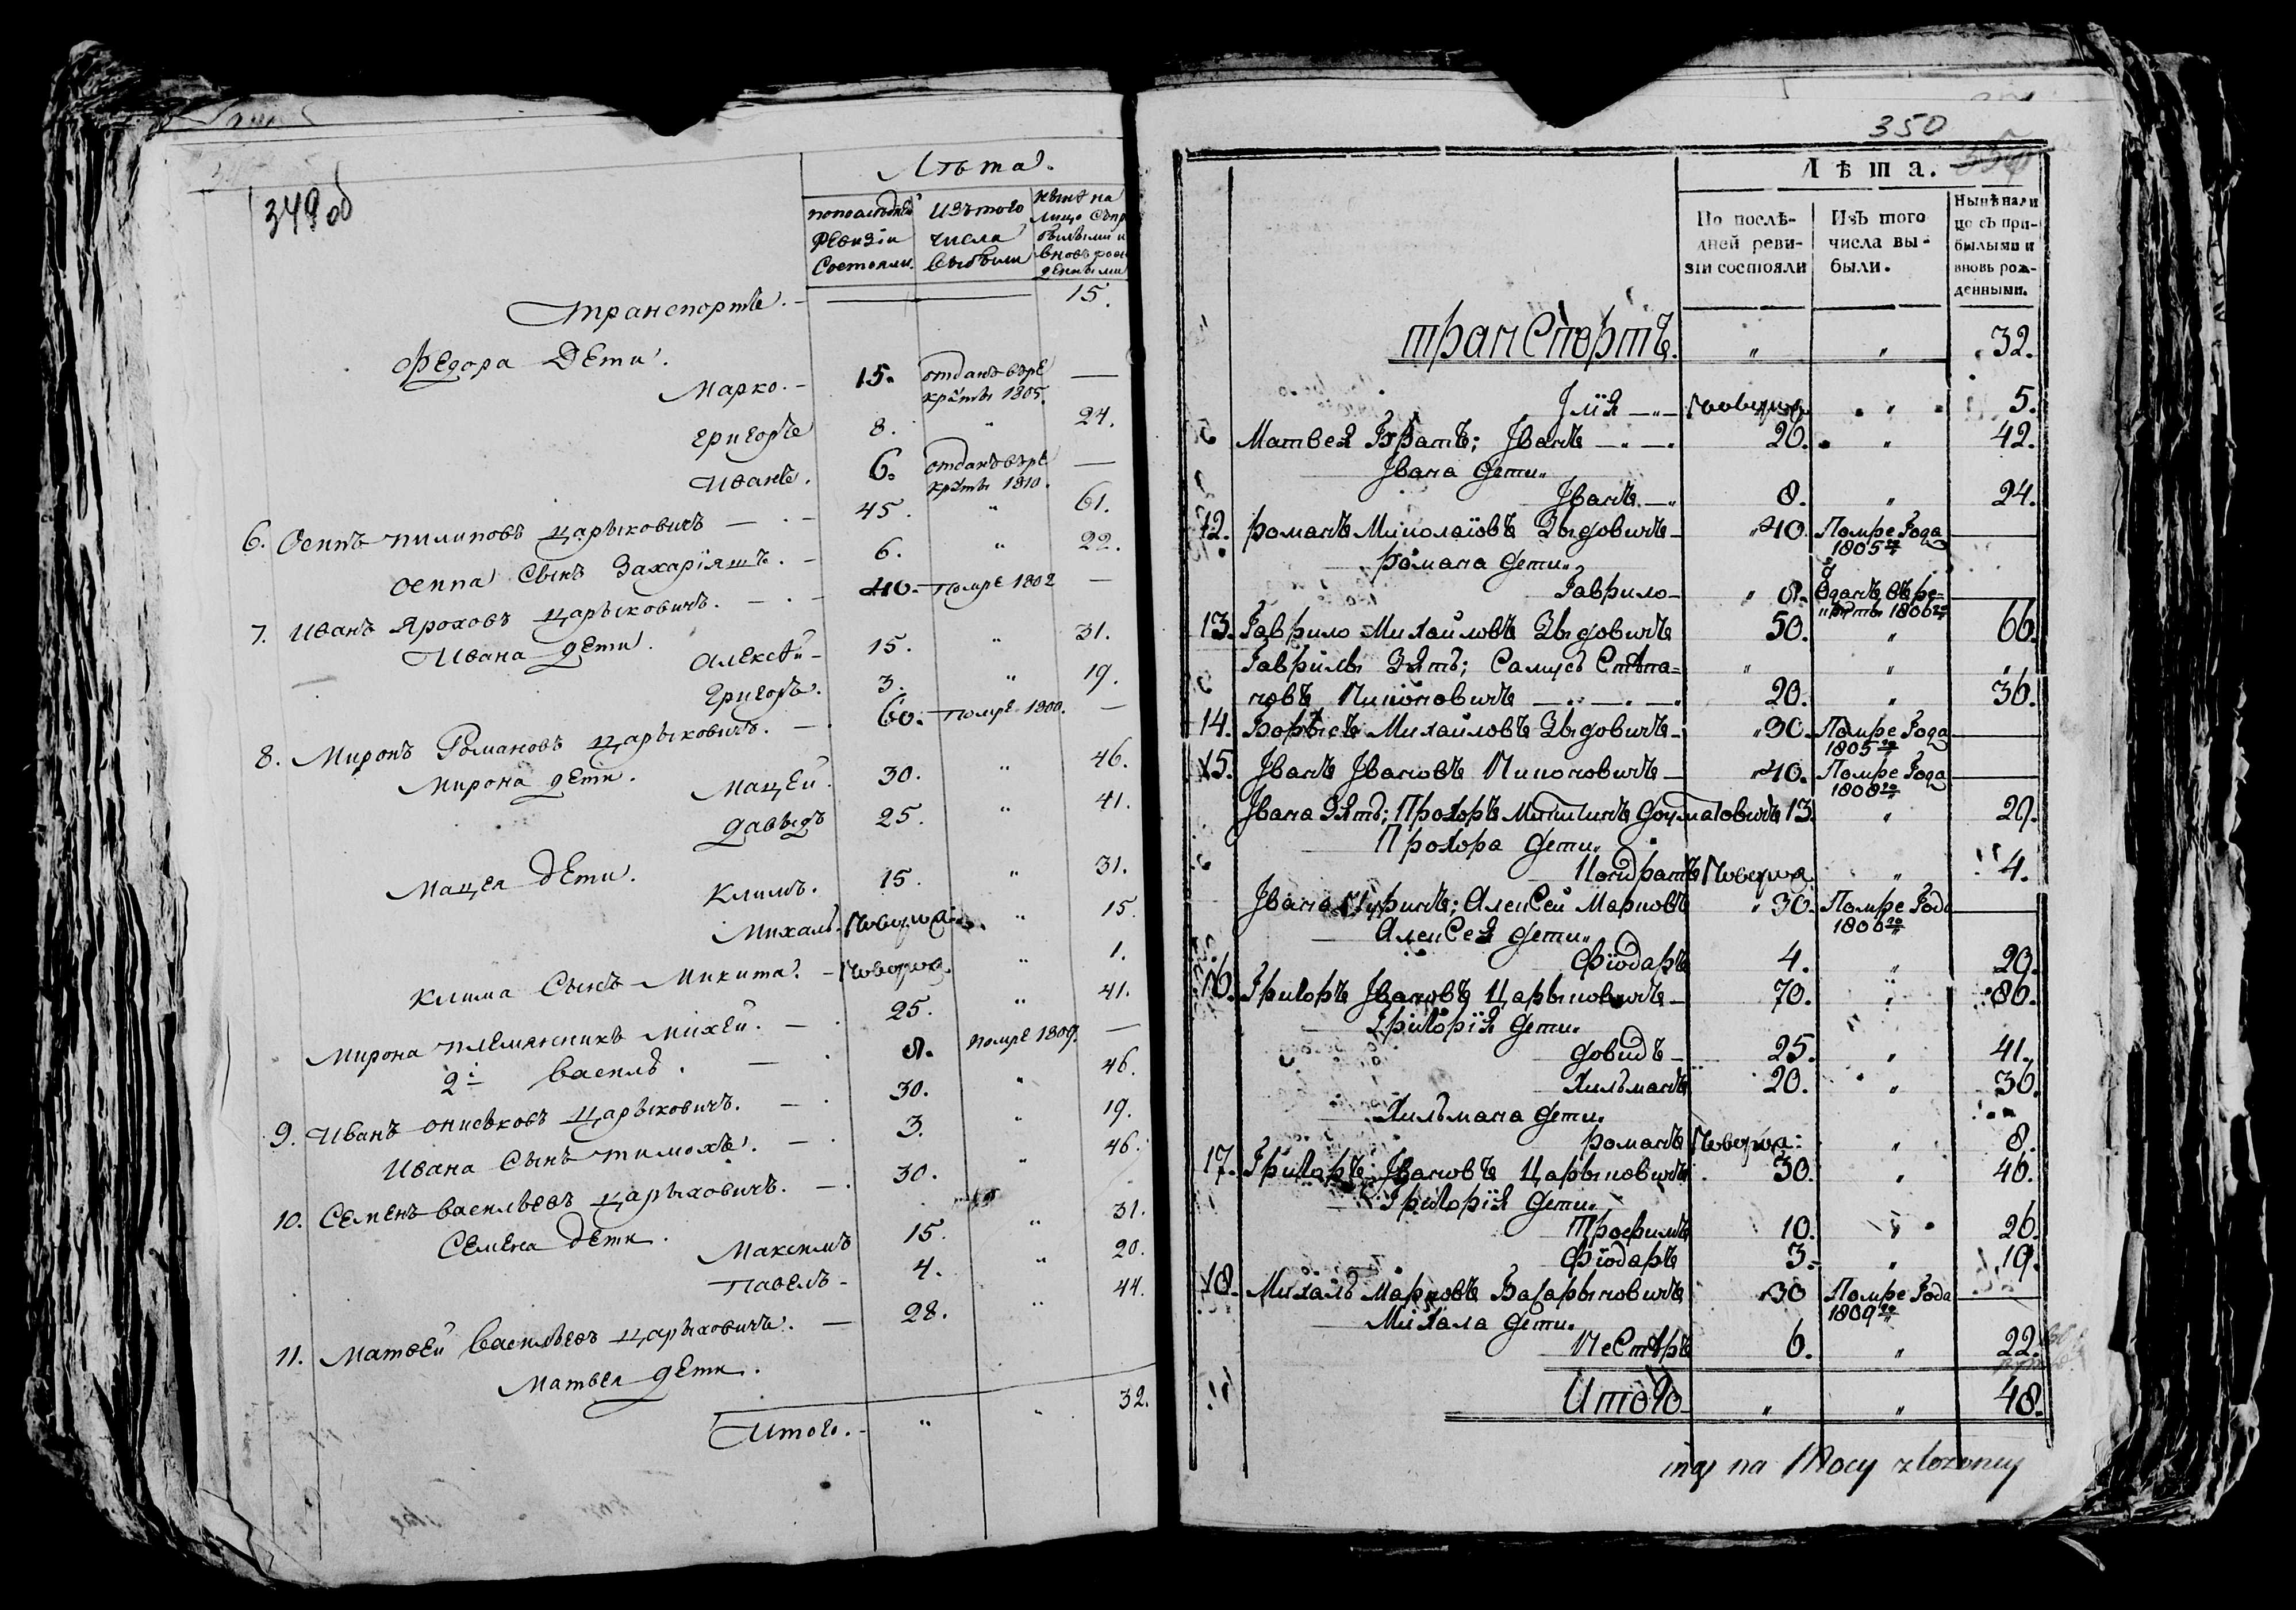 349 об
Лѣта.
попоследней ревизіи состояли.
изътого числа выбыли
ныне на лицо съпр былыми и вновь рож денными
транспортъ. 15.
Федора дети.
Марко. 15. отданъ въре круты 1805. —
Григоръ 8. " 24.
Иванъ. 6. отданъ въре круты 1810. —
6. Осипъ пилиповъ царыковичъ 45. " 61.
осипа сынъ Захаріяшъ. 6. " 22.
7. Иванъ Ярохов царыковичъ. 40. помре 1802 —
Ивана дети.
Алексѣй 15. " 31.
Григоръ. 3. " 19.
8. Миронъ Романовъ царыковичъ. 60. помре 1800. —
Мирона дети.
Мацей. 30. " 46.
давыдъ 25. " 41.
Мацея дети.
Климъ. 15. " 31.
Михалъ. Новорож. " 15.
Клима сынъ Микита. Новорож. " 1.
Мирона племянникъ Михей. 25. " 41.
2й василь. 8. помре 1809. —
9. Иванъ ониськовъ царыковичъ. 30. " 46.
Ивана сынъ тимохъ. 3. " 19.
10. Семенъ васильевъ царыковичъ. 30. " 46.
Семена дети.
Максимъ 15. " 31.
Павелъ 4. " 20.
11. Матвей васильевъ царыковичъ. 28. " 44.
Матвея дети.
Итого. " " 32.
350
Лѣта.
По послѣ-
дней реви-
зіи состояли
Изъ того
числа вы-
были.
Нынѣ нали
цо съ при-
былыми и
вновь рож-
денными.
транспортъ. " " 32.
Ілія Новорож. " 5.
Матвея Братъ; Іванъ 20. " 42.
Івана дети
Іванъ. 8. " 24.
12. романъ Миколаювъ Зыдовичъ 40. Помре Года —
1805го
романа дети
Гаврило 8. Оданъ въре- —
круты 1806го
13. Гаврило Михайловъ Зыдовичъ 50. " 66.
Гаврилы Зять; Самусь Степа- " " "
новъ Кипоновичъ 20. " 36.
14. Борысъ Михайловъ Зыдовичъ 30. Помре Года —
1805го
15. Іванъ Івановъ Кипоновичъ 40. Помре Года —
1808го
Івана Зять; Прохоръ Микитинъ доуматовичъ 13. " 29.
Прохора дети
Кондратъ Новорож " 4.
Івана Шуринъ; Алексей Марковъ 30. Помре Года —
1806го
Алексея дети
Фіодаръ 4. " 20.
16. Григоръ Івановъ Царыковичъ 70. " 86.
Григорія дети
довидъ 25. " 41.
Хильманъ 20. " 36.
Хильмана дети
романъ Новорож. " 8.
17. Григоръ Івановъ Царыковичъ 30. " 46.
Григорія дети
Трофимъ 10. " 26.
Фіодаръ 3. " 19.
18. Михалъ Марковъ Захарыковичъ 30 Помре Года —
1809го
Михала дети.
Нестаръ 6. " 22.
Итого " " 48.
na Mocy złożoney